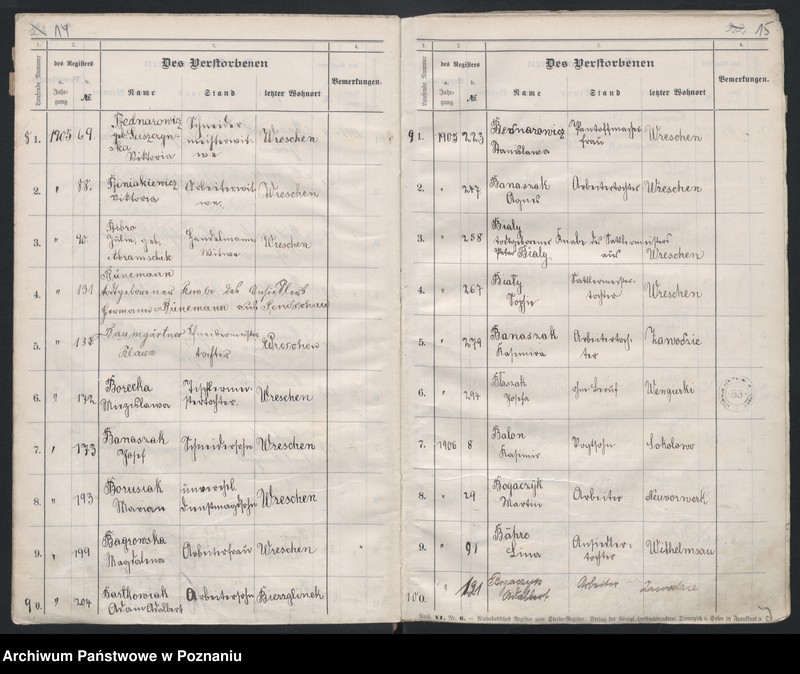 14
1.
2.
3.
4.
des Registers
Des Verstorbenen
Bemerkungen.
Laufende Nummer
a. Jahrgang
b. №
Name
Stand
letzter Wohnort
81.
1905
69.
Bednarowicz
geb.
Viktoria
Schneider
meisterwit-
we
Wreschen
2.
"
88.
Beniakiewicz
Viktoria
Arbeiterwit-
we.
Wreschen
3.
"
90.
Bibro
Julie, geb.
Abramschik
Handelsmann
Witwe
Wreschen
4.
"
131
Bünemann
todtgeborener Knabe des Ansiedlers
Hermann Bünemann aus
5.
"
Baumgärtner
Klara
Schneidermeister
tochter
Wreschen
6.
"
172
Borecka
Miezislawa
Tischlermei-
stertochter.
Wreschen
7.
"
173
Banaszak
Josef
Schneidersohn
Wreschen
8.
"
193
Borusiak
Marian
unverehel.
Dienstmagdsohn
Wreschen
9.
"
199
Bagrowska
Magdalena
Arbeiterfrau
Wreschen
90.
"
204
Bartkowiak
Adam Adalbert
Arbeitersohn
Bierzglinek
15
1.
2
3.
4.
des Registers
Des Verstorbenen
Bemerkungen.
Laufende Nummer
a. Jahrgang
b. №
Name
Stand
letzter Wohnort
91.
1905
223
Bednarowicz
Stanislawa
frau
Wreschen
2.
"
247
Banaszak
Agnes
Arbeitertochter
Wreschen
3.
"
258
Bialy
todtgeborener Knabe des Sattlermeisters
Peter Bialy
aus
Wreschen
4.
"
267
Biały
Sophie
Sattlermeister-
tochter
Wreschen
5.
"
279
Banaszak
Kasimira
Arbeitertoch-
ter
Zawodzie
6.
"
294
Błaszak
Josefa
ohne Beruf
Wengierki
7.
1906
8
Balon
Kasimir
Vogtsohn
Sokolowo
8.
"
29
Bogaczyk
Martin
Arbeiter
Neuvorwerk
9.
"
91
Bähro
Lina
Ansiedler-
tochter
Wilhelmsau
100.
"
121
Bogaczyk
Adalbert
Arbeiter
Zawodzie
Archiwum Państwowe w Poznaniu